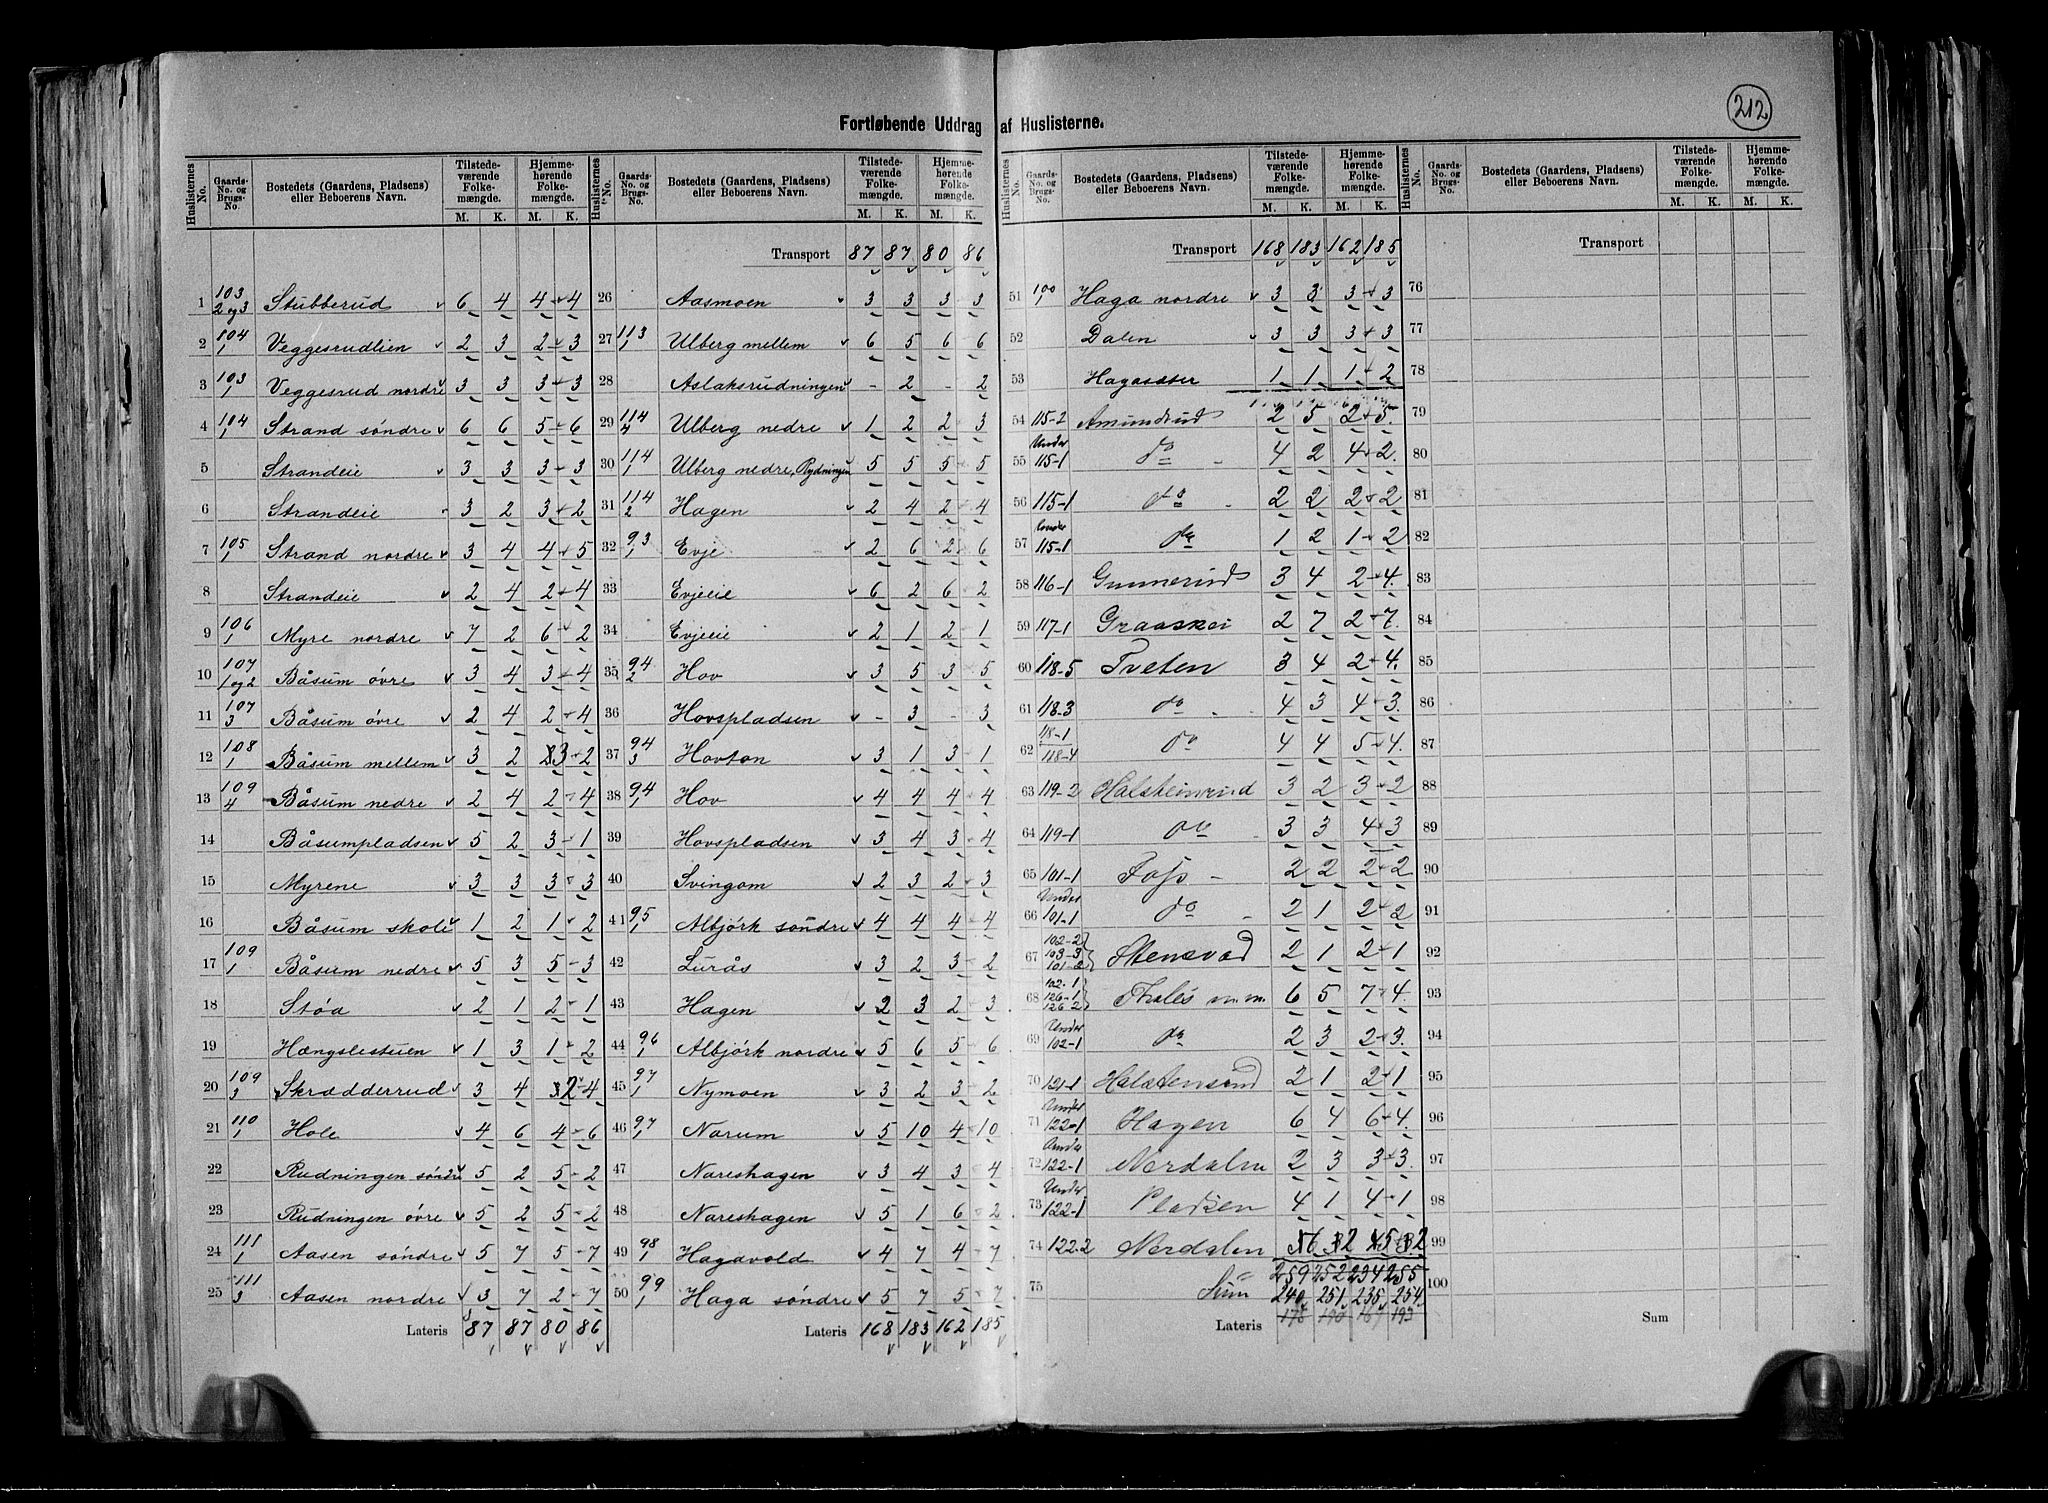 212
Fortløbende Uddrag af Huslisterne.
Huslisternes No. Gaards-No. og Brugs-No. Bostedets (Gaardens, Pladsens) eller Beboerens Navn. Tilstedeværende Folkemængde. M. K. Hjemmehørende Folkemængde. M. K.
1 103 2 og 3 Stubberud 6 4 4 4
2 104 1 Veggesrudlien 2 3 2 3
3 103 1 Veggesrud nordre 3 3 3 3
4 104 1 Strand søndre 6 6 5 6
5 Strandeie 3 3 3 3
6 Strandeie 3 2 3 2
7 105 1 Strand nordre 3 4 4 5
8 Strandeie 2 4 2 4
9 106 1 Myre nordre 7 2 6 2
10 107 1 og 2 Båsum øvre 3 4 3 4
11 107 3 Båsum øvre 2 4 2 4
12 108 1 Båsum mellem 3 2 3 2
13 109 4 Båsum nedre 2 4 2 4
14 Båsumpladsen 5 2 3 1
15 Myrene 3 3 3 3
16 Båsum skole 1 2 1 2
17 109 1 Båsum nedre 5 3 5 3
18 Støa 2 1 2 1
19 Hængslestuen 1 3 1 2
20 109 3 Skrædderrud 3 4 2 4
21 110 1 Hole 4 6 4 6
22 Rudningen søndre 5 2 5 2
23 Rudningen øvre 5 2 5 2
24 111 1 Aasen søndre 5 7 5 7
25 111 3 Aasen nordre 3 7 2 7
Lateris 87 87 80 86
Huslisternes No. Gaards-No. og Brugs-No. Bostedets (Gaardens, Pladsens) eller Beboerens Navn. Tilstedeværende Folkemængde. M. K. Hjemmehørende Folkemængde. M. K.
Transport 87 87 80 86
26 Aasmoen 3 3 3 3
27 113 1 Ulberg mellem 6 5 6 6
28 Aslaksrudningen - 2 - 2
29 114 4 Ulberg nedre 1 2 2 3
30 114 1 Ulberg nedre, Rydningen 5 5 5 5
31 114 2 Hagen 2 4 2 4
32 93 1 Evje 2 6 2 6
33 Evjeeie 6 2 6 2
34 Evjeeie 2 1 2 1
35 94 2 Hov 3 5 3 5
36 Hovspladsen - 3 - 3
37 94 3 Hovton 3 1 3 1
38 94 1 Hov 4 4 4 4
39 Hovspladsen 3 4 3 4
40 Svingom 2 3 2 3
41 95 1 Albjørk søndre 4 4 4 4
42 Lurås 3 2 3 2
43 Hagen 2 3 2 3
44 96 1 Albjørk nordre 5 6 5 6
45 97 1 Nymoen 3 2 3 2
46 97 1 Narum 5 10 4 10
47 Nareshagen 3 4 3 4
48 Nareshagen 5 1 6 2
49 98 1 Hagavold 4 7 4 7
50 99 1 Haga søndre 5 7 5 7
Lateris 168 183 162 185
Huslisternes No. Gaards-No. og Brugs-No. Bostedets (Gaardens, Pladsens) eller Beboerens Navn. Tilstedeværende Folkemængde. M. K. Hjemmehørende Folkemængde. M. K.
Transport 168 183 162 185
51 100 1 Haga nordre 3 3 3 3
52 Dalen 3 3 3 3
53 Hagasæter 1 1 1 2
54 115-2 Amundrud 2 5 2 5
55 Under 115-1 do 4 2 4 2
56 115-1 do 2 2 2 2
57 Under 115-1 do 1 2 1 2
58 116-1 Gunnerud 3 4 2 4
59 117-1 Graaskei 2 7 2 7
60 118-5 Tveten 3 4 2 4
61 118-3 do 4 3 4 3
62 118-1 118-4 do 4 4 5 4
63 119-2 Halsteinrud 3 2 3 2
64 119-1 do 3 3 4 3
65 101-1 Fojs 2 2 2 2
66 Under 101-1 do 2 1 2 2
67 102-2 103-3 101-2 Stensvad 2 1 2 1
68 102-1 126-1 126-2 Tholes 6 5 7 4
69 Under 102-1 do 2 3 2 3
70 121-1 Halstensrud 2 1 2 1
71 Under 122-1 Hagen 6 4 6 4
72 Under 122-1 Nordalen 2 3 3 3
73 Under 122-1 Pladsen 4 1 4 1
74 122-2 Nerdalen 6 2 5 2
75 259 252 234 255
Sum 240 251 235 254
Lateris 178 190 169 193
Huslisternes No. Gaards-No. og Brugs-No. Bostedets (Gaardens, Pladsens) eller Beboerens Navn. Tilstedeværende Folkemængde. M. K. Hjemmehørende Folkemængde. M. K.
Transport
76
77
78
79
80
81
82
83
84
85
86
87
88
89
90
91
92
93
94
95
96
97
98
99
100
Sum